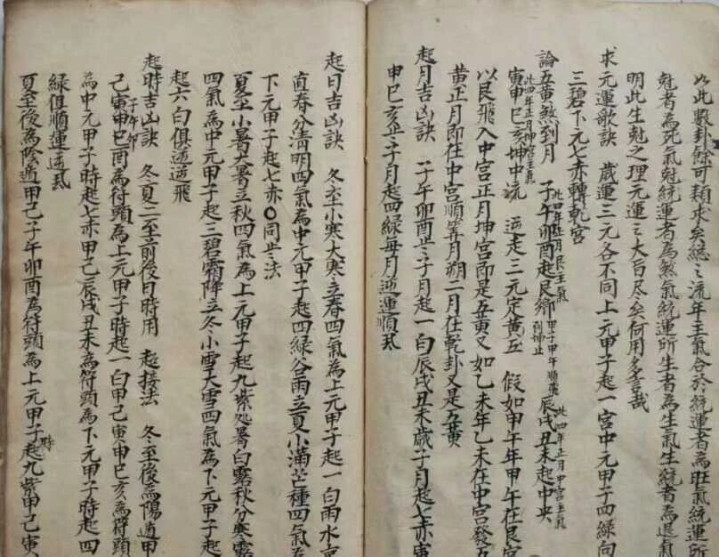 以此數餘可類求矣總之流年主氣合於統運者為旺氣統運所
尅者為死氣尅統運者為煞氣統運所生者為生氣生統者為退氣
明此生尅之理元運之大旨尽矣何用多言哉
求元運歌訣 歲運三元各不同上元甲子起一宮中元甲子四綠向
三碧下元七赤轉乾宮
論五黃煞到月 子午卯酉起艮鄉 辰戌丑未起中央
寅申巳亥坤中流 逆走三元定黃五 假如甲午年甲午在艮宮
以艮飛入中宮正月坤宮即是五黃又如乙未年乙未在中宮發五
黃正月即在中宮順筭月朔二月在乾卦又是五黃
起月吉凶訣 子午卯酉世子月起一白辰戌丑未歲子月起七赤寅
申巳亥子月起四綠每月逆運順貳
起日吉凶訣 冬至小寒大寒立春四氣為上元甲子起一白雨水京
直春分清明四氣為中元甲子起四綠谷雨立夏小滿芒種四氣為
下元甲子起七赤〇同些法
夏至小暑大暑立秋四氣為上元甲子起九紫処暑白露秋分寒露
四氣為中元甲子起三碧霜降立冬小雪大雪四氣為下元甲子起
起六白俱逆逆飛
起時吉凶訣 冬夏二至前後日時用 起接法 冬至後為陽遁甲
己寅申巳酉為符頭為上元甲子時起一白甲己寅申巳亥為符頭
為中元甲子時起七赤甲己辰戌丑未為符頭為下元甲子時起四
綠俱順運逆貳
夏至後為陰遁甲己子午卯酉為符頭為上元甲子時起九紫甲己寅